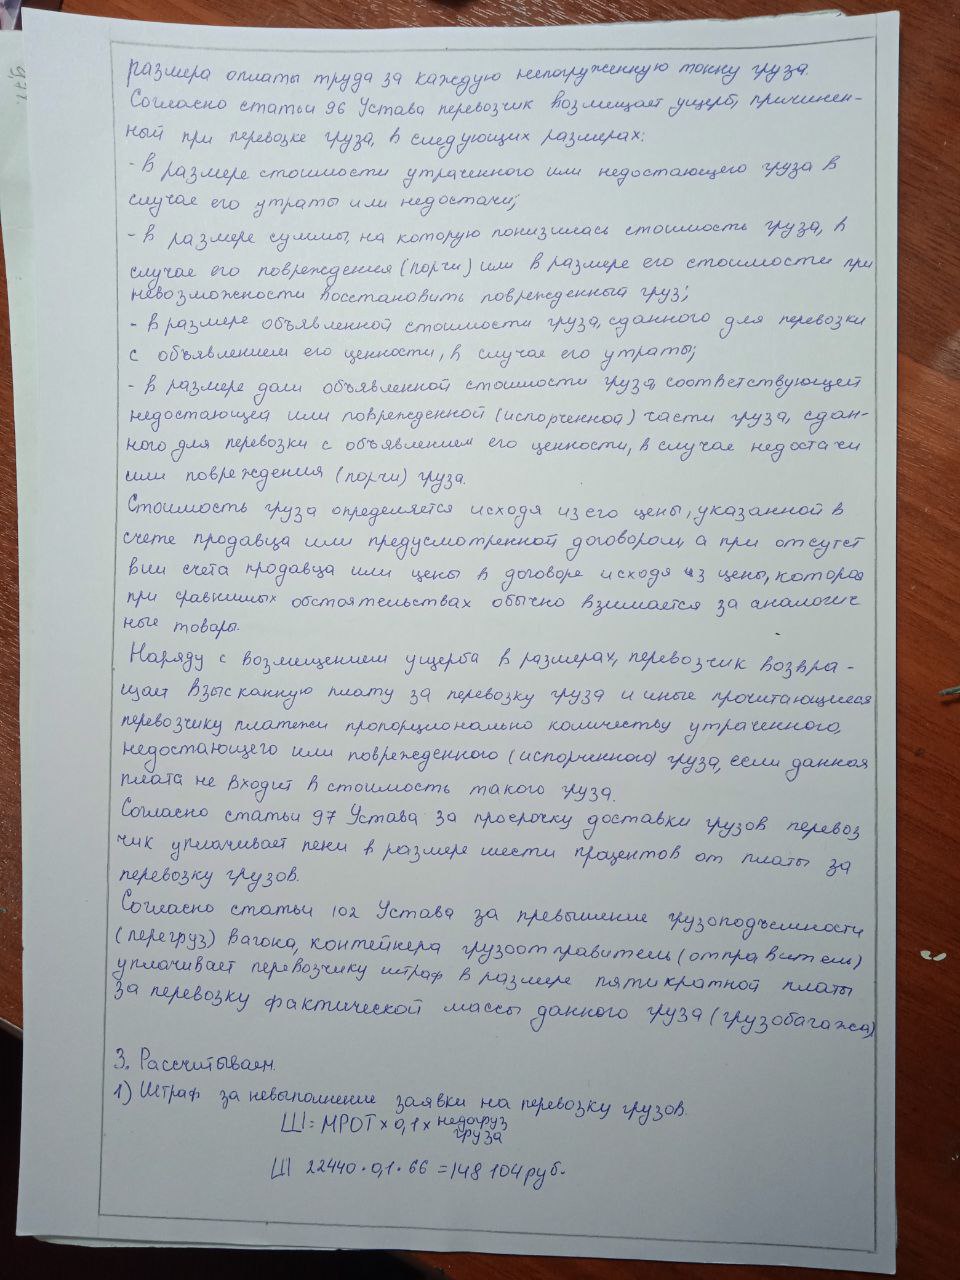 размера оплаты труда за каждую непогруженную тонну груза.
Согласно статьи 96 Устава перевозчик возмещает ущерб, причинен-
ный при перевозке груза, в следующих размерах:
- в размере стоимости утраченного или недостающего груза в
случае его утраты или недостачи;
- в размере суммы, на которую понизилась стоимость груза, в
случае его повреждения (порчи) или в размере его стоимости при
невозможности восстановить поврежденный груз;
- в размере объявленной стоимости груза, сданного для перевозки
с объявлением его ценности, в случае его утраты;
- в размере доли объявленной стоимости груза, соответствующей
недостающей или поврежденной (испорченной) части груза, сдан-
ного для перевозки с объявлением его ценности, в случае недостачи
или повреждения (порчи) груза.
Стоимость груза определяется исходя из его цены, указанной в
счете продавца или предусмотренной договором, а при отсутст
вии счета продавца или цены в договоре исходя из цены, которая
при сравнимых обстоятельствах обычно взимается за аналогич
ные товары.
Наряду с возмещением ущерба в размерах, перевозчик возвра-
щает взысканную плату за перевозку груза и иные прочитающиеся
перевозчику платежи пропорционально количеству утраченного,
недостающего или поврежденного (испорченного) груза, если данная
плата не входит в стоимость такого груза.
Согласно статьи 97 Устава за просрочку доставки грузов перевоз
чик уплачивает пени в размере шести процентов от платы за
перевозку грузов.
Согласно статьи 102 Устава за превышение грузоподъемности
(перегруз) вагона, контейнера грузоотправитель (отправитель)
уплачивает перевозчику штраф в размере пятикратной платы
за перевозку фактической массы данного груза (грузобагажа)
3. Рассчитываем.
1) Штраф за невыполнение заявки на перевозку грузов.
Ш = МРОТ × 0,1 × недогруз
груза
Ш 22440 · 0,1 · 66 = 148 104 руб.